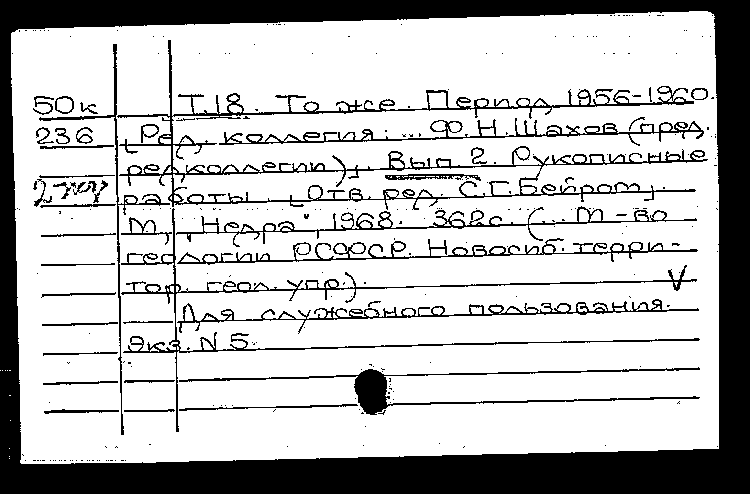 50к Т.18. То же. Период 1956-1960.
236 [Ред. коллегия: ... Ф.Н.Шахов (пред.
редколлегии)], Вып 2. Рукописные
работы. [Отв. ред. С.Г.Бейром].
М, "Недра", 1968. 362с. (... М-во
геологии РСФСР. Новосиб. терри-
тор. геол. упр.). V
Для служебного пользования.
Экз. N 5.